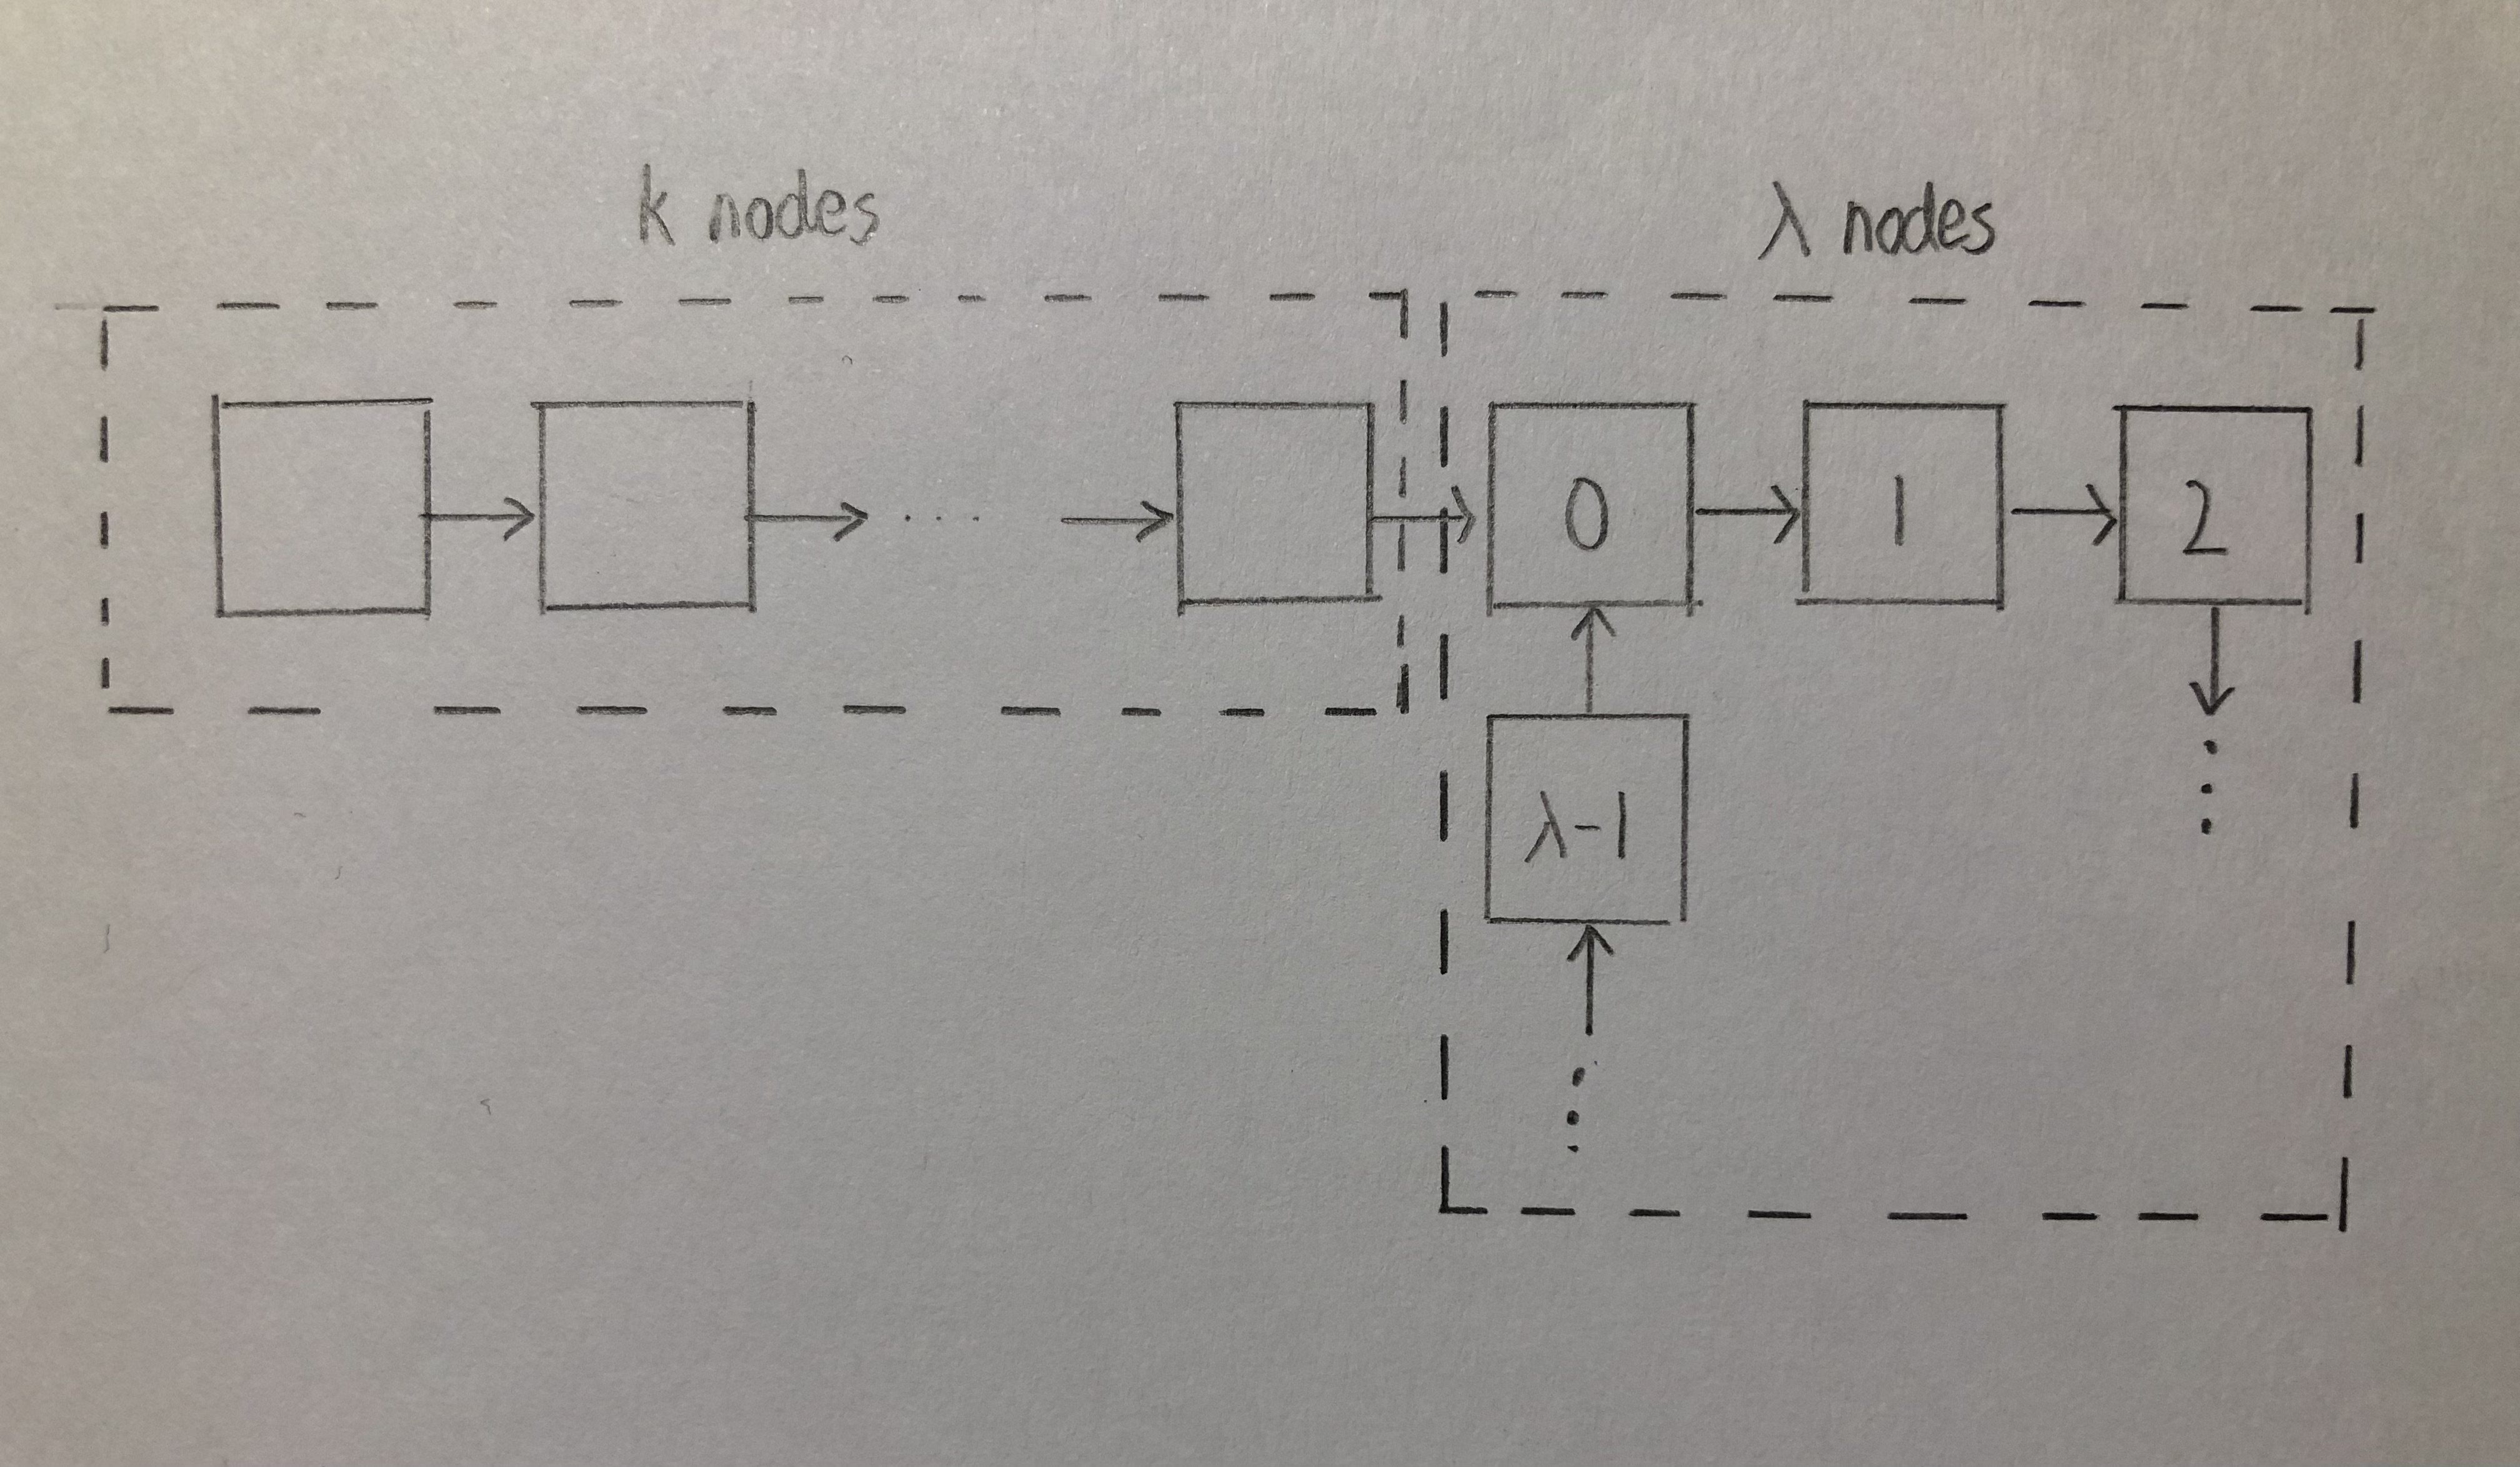 k nodes
λ nodes
0 1 2
λ-1